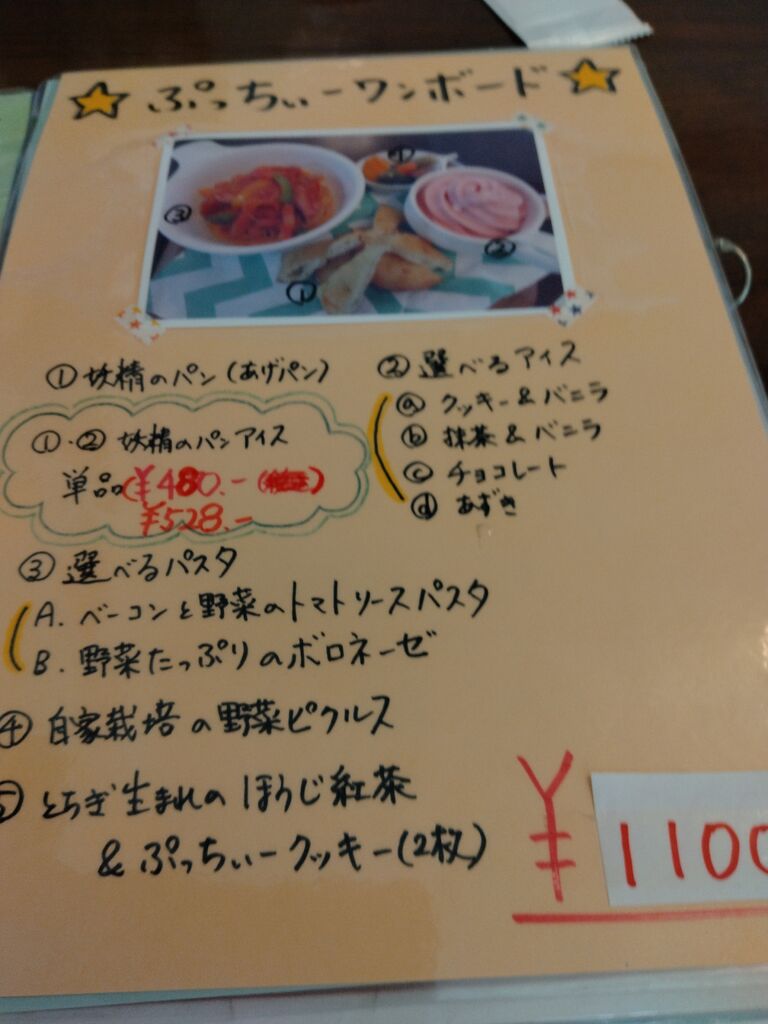 ぷっちぃーワンボード
③
④
②
①
①妖精のパン(あげパン)
①・②妖精のパンアイス
単品(¥480.-
¥528.-
②選べるアイス
ⓐクッキー&バニラ
ⓑ抹茶&バニラ
ⓒチョコレート
ⓓあずき
③選べるパスタ
A.ベーコンと野菜のトマトソースパスタ
B.野菜たっぷりのボロネーゼ
④自家栽培の野菜ピクルス
⑤とちぎ生まれのほうじ紅茶
&ぷっちぃークッキー(2枚)
¥1100